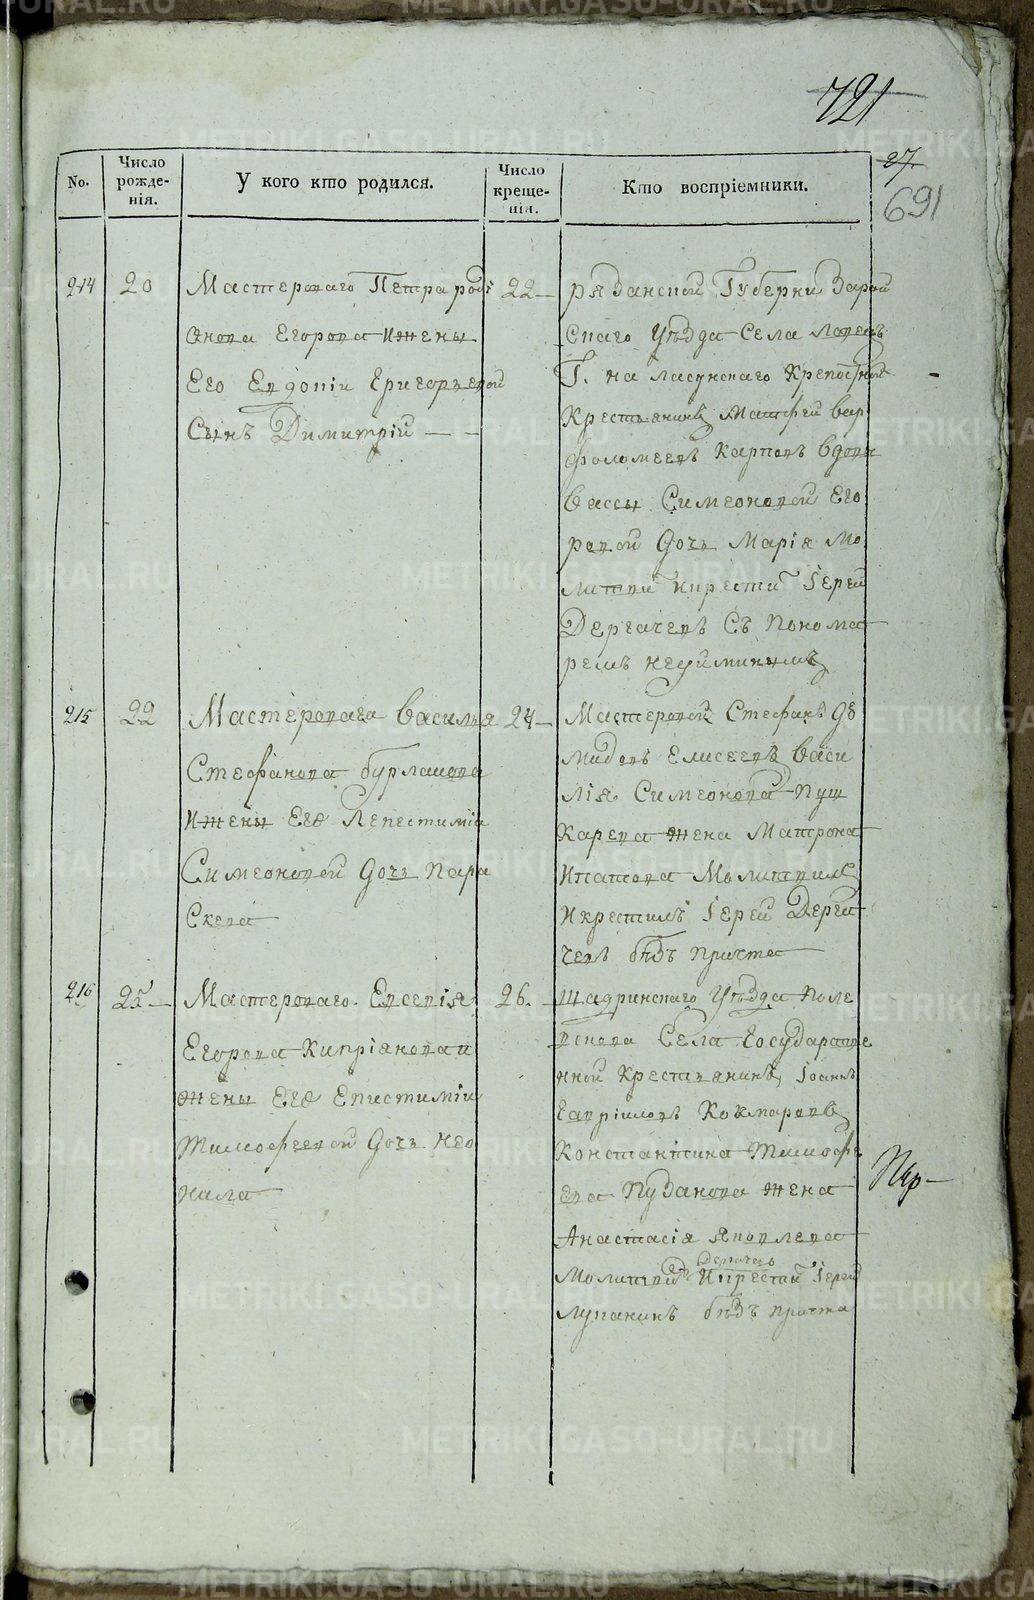 721
27.
691
No.
Число рожде-нія.
У кого кто родился.
Число креще-нія.
Кто воспріемники.
214
20
Мастероваго Петра роді
онова Егорова ижены
Его Евдокіи Григорьевой
Сынъ Димитрій — -
22 —
рязанской Губерни Зарай
скаго Уѣзда Села
Г. на крепостной
Крестьянинъ Матфей Вар
фоломеевъ Карповъ Вдовы
Вассы Симеоновой Его
ровой Дочь Марія Мо
литвой икрестил Іерей
Дергачевъ Съ Понома
ремъ
215
22
Мастероваго Василья
Стефанова бурлакова
ижены Его Лепестиміи
Симеоновой Дочь Пара
скева
24 —
Мастеровой Стефанъ Дѣ
мидовъ Елисеевъ Васи
лія Симеонова Пуш
карева жена Матрона
Ипатова Молитвилъ
Икрестилъ Іерей Дерга
чевъ безъ причта
216
25 —
Мастероваго Евсевія
Егорова Кипріянова и
жены Его Епистиміи
Тимофеевой Дочь Нео
нила
26. —
Шадринскаго Уѣзда Поле
вскова Села Государстве
нной Крестьянинъ Іоаннъ
Гавріиловъ Кокшаровъ
Константина Тимофе
ева Пузанова жена
Анастасія Яковлева
Дергачевъ
Молитвой Икрестил Іерей
Лупанинъ безъ причта
METRIKI.GASO-URAL.RU